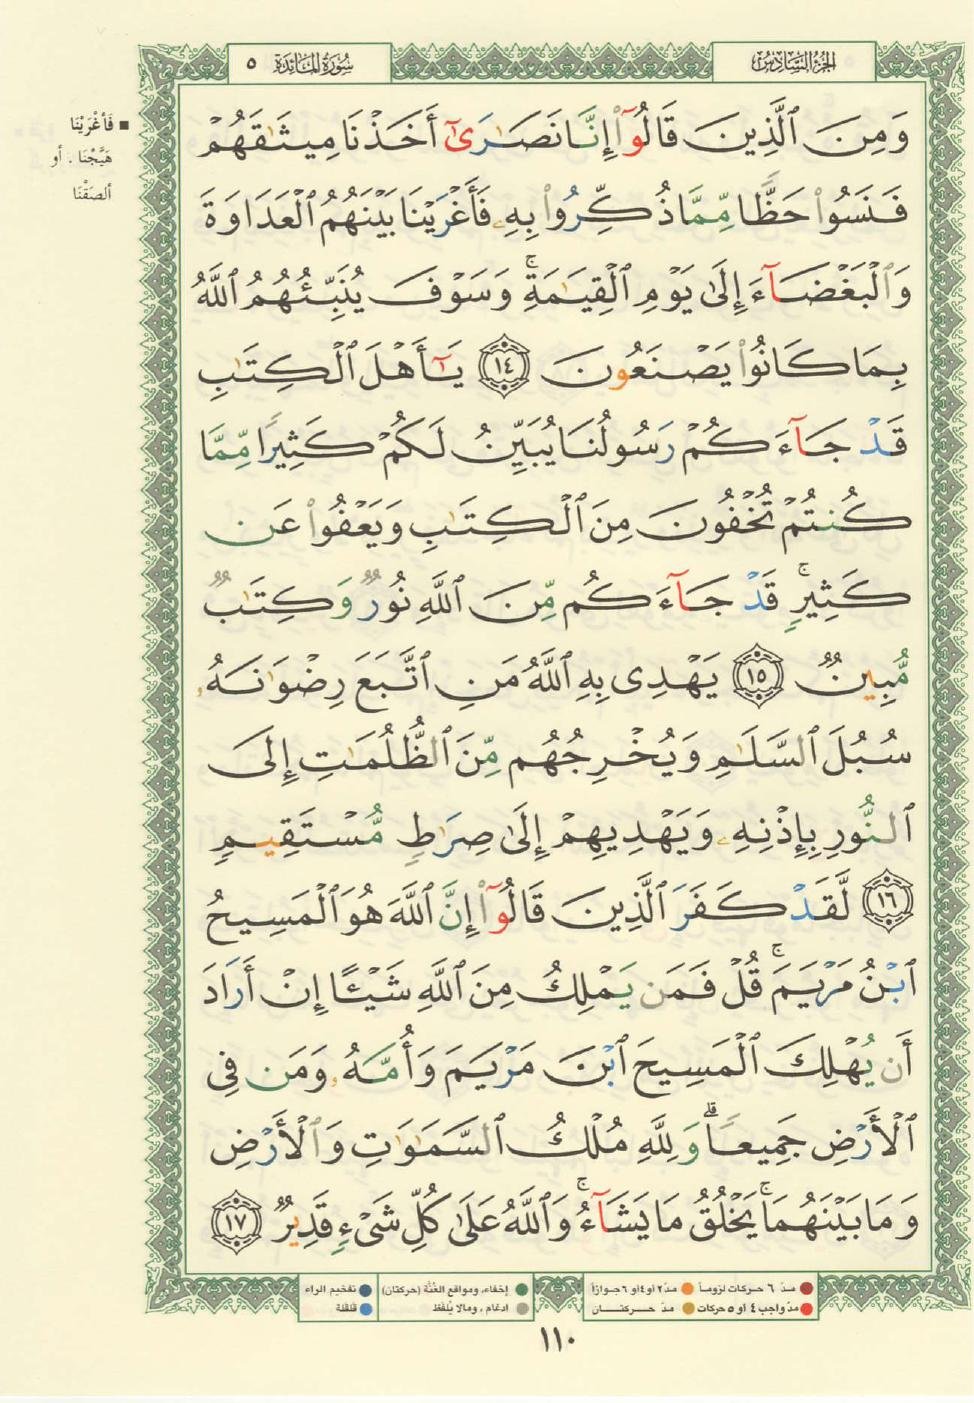 سُورَةُ المَائِدَة ٥
الجُزْءُ السَّادِسُ
وَمِنَ ٱلَّذِينَ قَالُوٓا۟ إِنَّا نَصَـٰرَىٰٓ أَخَذْنَا مِيثَـٰقَهُمْ
فَنَسُوا۟ حَظًّا مِّمَّا ذُكِّرُوا۟ بِهِۦ فَأَغْرَيْنَا بَيْنَهُمُ ٱلْعَدَاوَةَ
وَٱلْبَغْضَآءَ إِلَىٰ يَوْمِ ٱلْقِيَـٰمَةِ ۚ وَسَوْفَ يُنَبِّئُهُمُ ٱللَّهُ
بِمَا كَانُوا۟ يَصْنَعُونَ ١٤ يَـٰٓأَهْلَ ٱلْكِتَـٰبِ
قَدْ جَآءَكُمْ رَسُولُنَا يُبَيِّنُ لَكُمْ كَثِيرًا مِّمَّا
كُنتُمْ تُخْفُونَ مِنَ ٱلْكِتَـٰبِ وَيَعْفُوا۟ عَن
كَثِيرٍ ۚ قَدْ جَآءَكُم مِّنَ ٱللَّهِ نُورٌ وَكِتَـٰبٌ
مُّبِينٌ ١٥ يَهْدِى بِهِ ٱللَّهُ مَنِ ٱتَّبَعَ رِضْوَٰنَهُۥ
سُبُلَ ٱلسَّلَـٰمِ وَيُخْرِجُهُم مِّنَ ٱلظُّلُمَـٰتِ إِلَى
ٱلنُّورِ بِإِذْنِهِۦ وَيَهْدِيهِمْ إِلَىٰ صِرَٰطٍ مُّسْتَقِيمٍ
١٦ لَّقَدْ كَفَرَ ٱلَّذِينَ قَالُوٓا۟ إِنَّ ٱللَّهَ هُوَ ٱلْمَسِيحُ
ٱبْنُ مَرْيَمَ ۚ قُلْ فَمَن يَمْلِكُ مِنَ ٱللَّهِ شَيْـًٔا إِنْ أَرَادَ
أَن يُهْلِكَ ٱلْمَسِيحَ ٱبْنَ مَرْيَمَ وَأُمَّهُۥ وَمَن فِى
ٱلْأَرْضِ جَمِيعًا ۗ وَلِلَّهِ مُلْكُ ٱلسَّمَـٰوَٰتِ وَٱلْأَرْضِ
وَمَا بَيْنَهُمَا ۚ يَخْلُقُ مَا يَشَآءُ ۚ وَٱللَّهُ عَلَىٰ كُلِّ شَىْءٍ قَدِيرٌ ١٧
■ فَأَغْرَيْنَا
هَيَّجْنَا ، أو
ألصَقْنَا
مدّ ٦ حركات لزوماً مدّ ٢ أو ٤ أو ٦ جوازاً
مدّ واجب ٤ أو ٥ حركات مدّ حركتان
إخفاء، ومواقع الغُنَّة (حركتان) تفخيم الراء
إدغام ، ومالا يُلفَظ قلقلة
١١٠